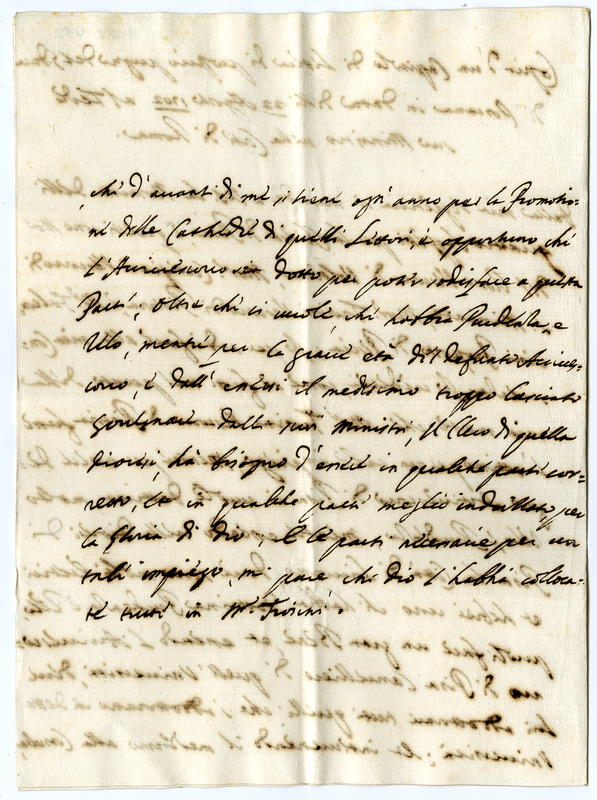 che d'avanti di me si tiene ogn'anno per la Promotio=
ne delle Cathedre di quelli Lettori, è opportuno, che
l'Arcivescovo sia dotto per poter sodisfare a questa
Parte; oltre che ci vuole, che habbia Prudenza, e
Zelo, mentre per la grave età del defunto Arcives=
covo, e dall'essersi il medesimo troppo lasciato
governare dalli suoi ministri, il Clero di quella
diocesi, hà bisogno d'essere in qualche parte cor=
retto, et in qualche parte meglio indrizzato per
la Gloria di Dio; E le parti necessarie per un
tale impiego, mi pare che Dio l'habbia colloca=
te tutte in Mr. Frosini.